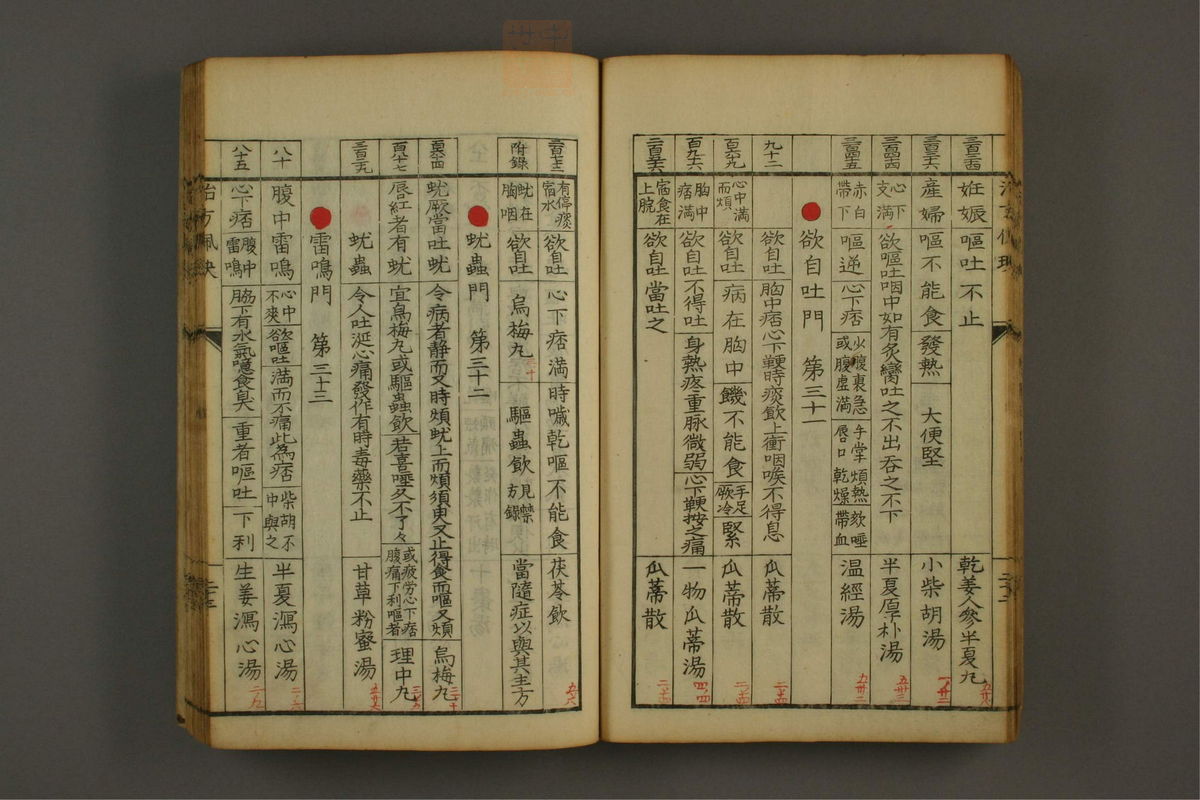 妊娠 嘔吐不止 乾姜人參半夏丸
産婦 嘔不能食 發熱 大便堅 小柴胡湯
心下支滿 欲嘔吐 咽中如有炙臠 吐之不出吞之不下 半夏厚朴湯
赤白帶下 嘔逆 心下痞 或腹虛滿 手掌煩熱 唇口乾燥 帶血 温經湯
欲自吐門 第三十一
九十二 欲自吐 胸中痞 心下鞕 時痰飲上衝咽喉不得息 瓜蒂散
心中滿而煩 欲自吐 病在胸中 饑不能食 手足厥冷 緊 瓜蒂散
胸中痞滿 欲自吐 不得吐 身熱疼重 脉微弱 心下鞕 按之痛 一物瓜蒂湯
宿食在上脘 欲自吐 當吐之 瓜蒂散
有停痰宿水 欲自吐 心下痞滿 時噦乾嘔不能食 茯苓飲
附錄 蚘在胸咽 欲自吐 烏梅丸 驅蟲飲 見禁方錄 當隨症以與其主方
蚘蟲門 第三十二
蚘厥當吐蚘 令病者静而又時煩 蚘上而煩須臾又止 得食而嘔又煩 烏梅丸
唇紅者有蚘 宜烏梅丸或驅蟲飲 若喜唾久不了々 或疲労心下痞腹痛下利嘔者 理中丸
蚘蟲 令人吐涎心痛發作有時毒藥不止 甘草粉蜜湯
雷鳴門 第三十三
八十 腹中雷鳴 心中不爽 欲嘔吐 滿而不痛此為痞 柴胡不中與之 半夏瀉心湯
八十五 心下痞 腹中雷鳴 脇下有水氣 噫食臭 重者嘔吐 下利 生姜瀉心湯